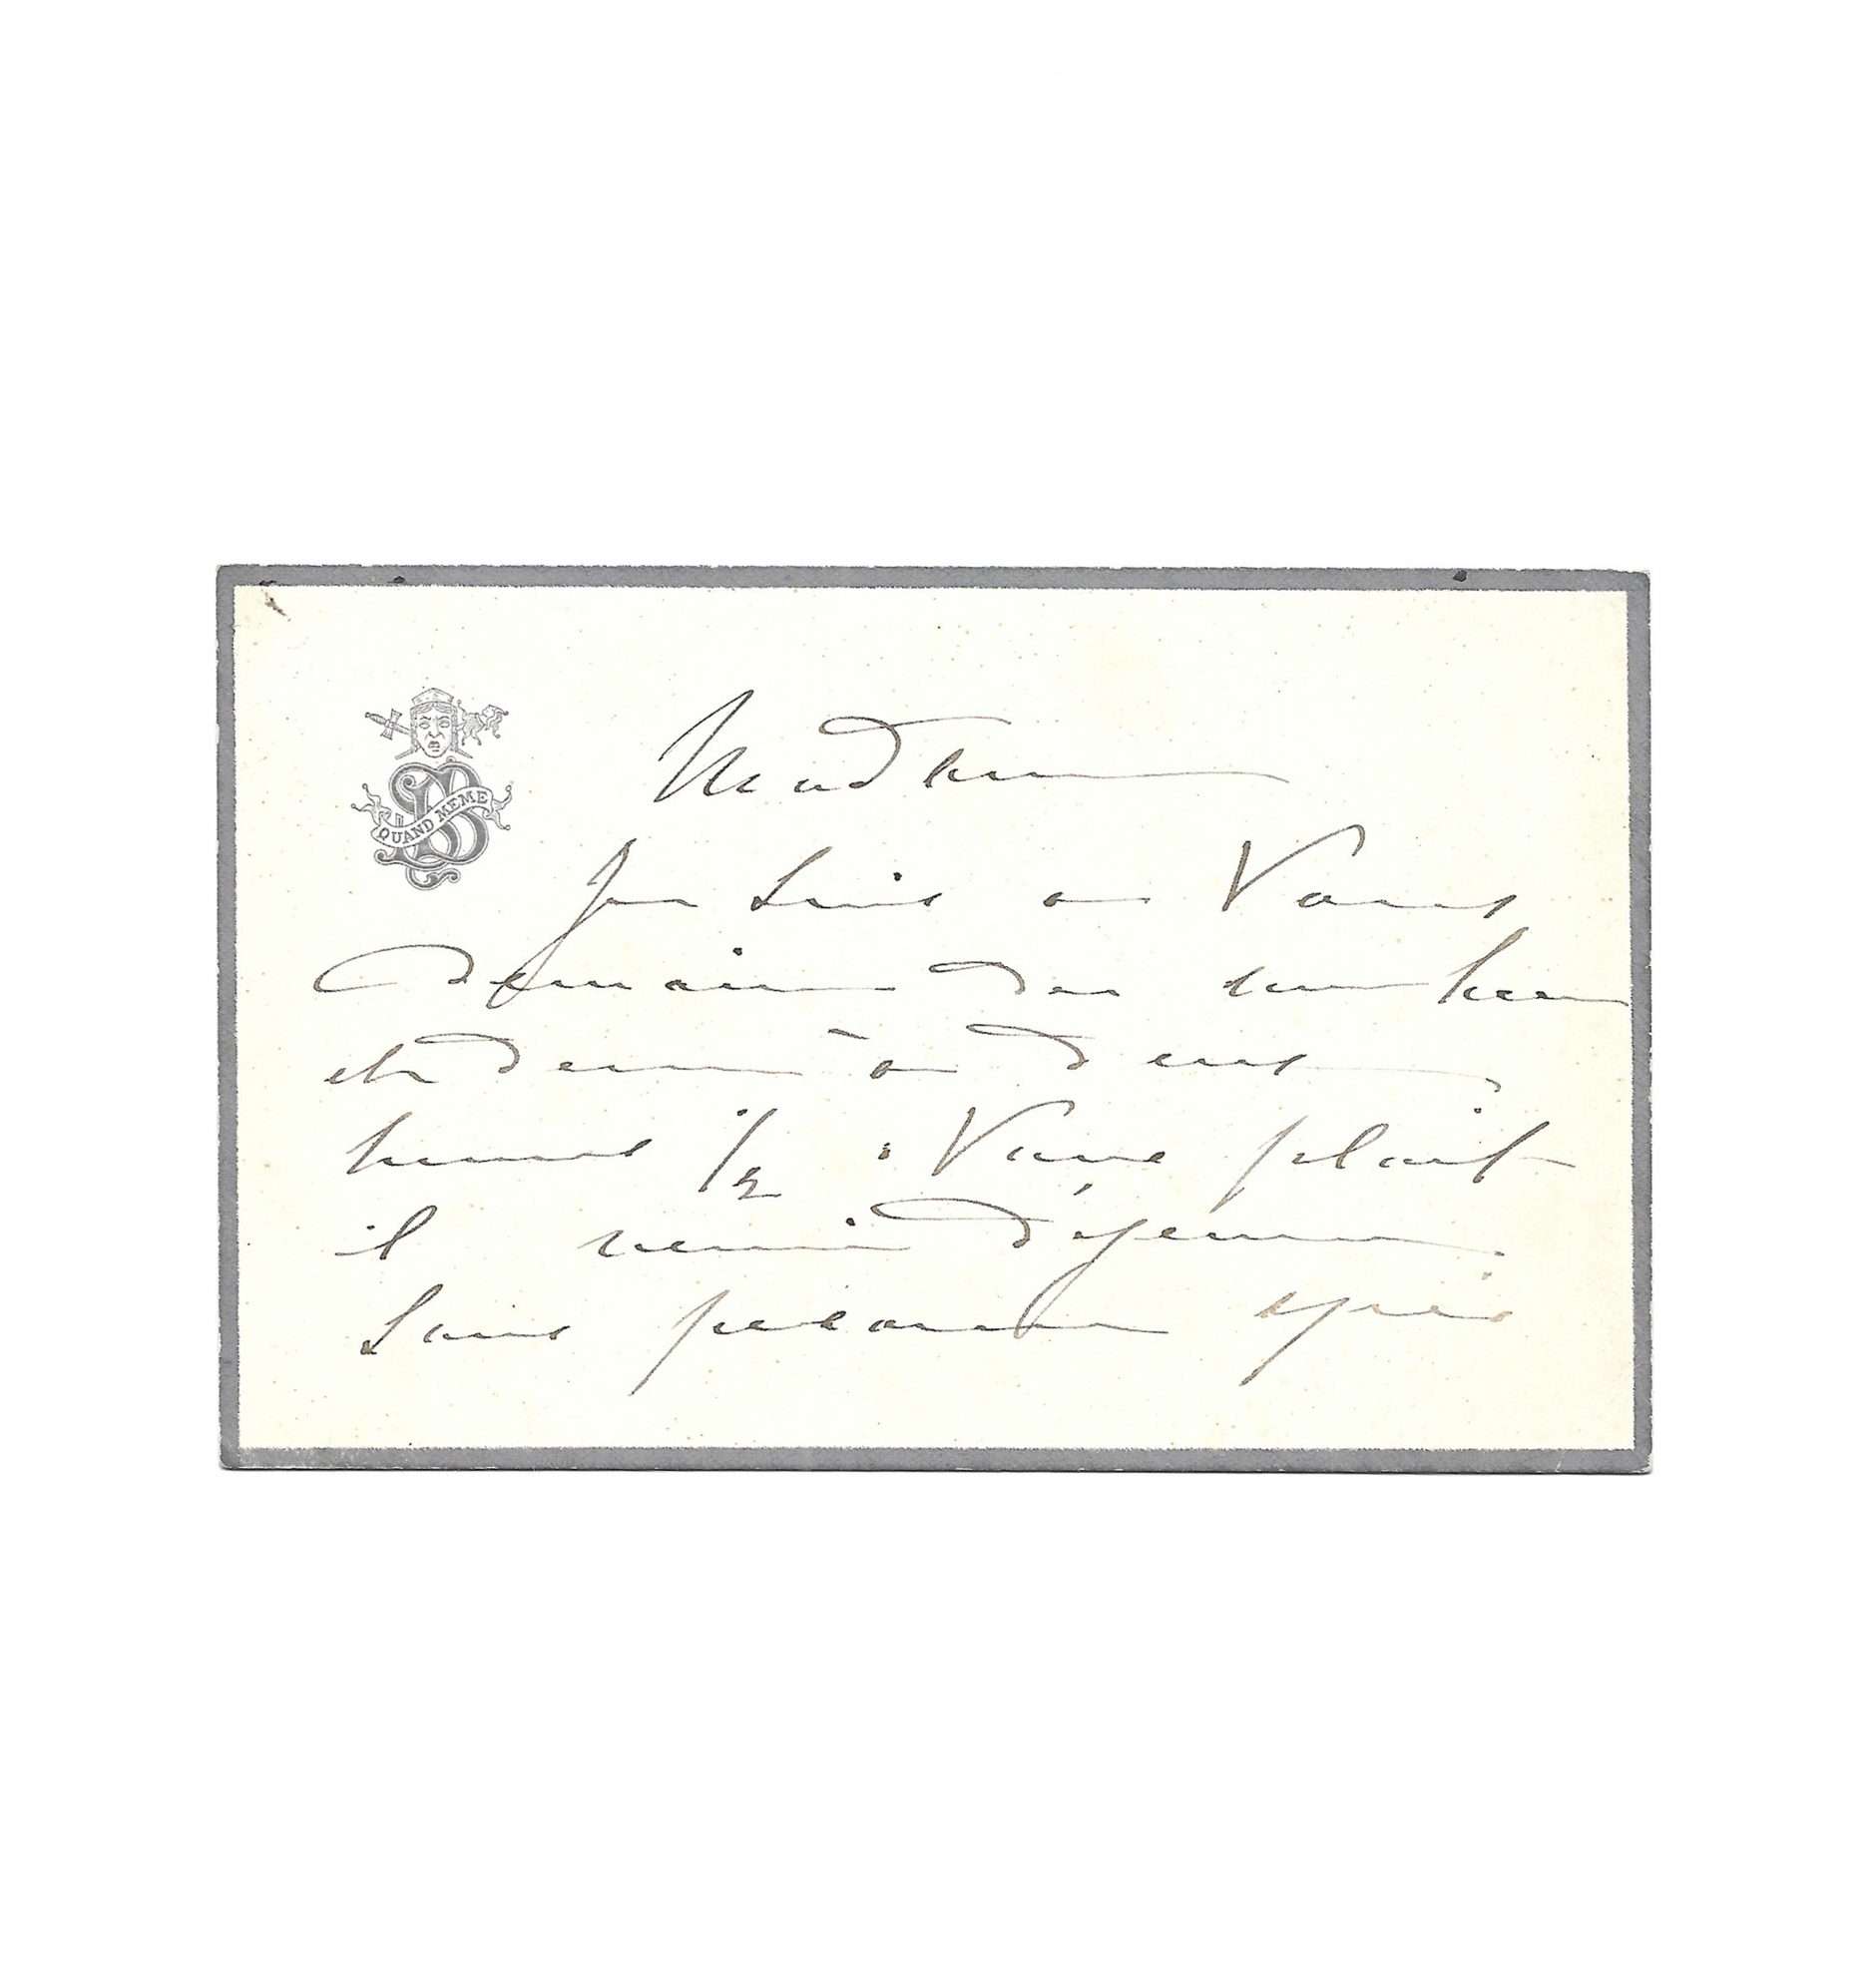 QUAND MEME
Madame
Je suis a Vous
demain de une heure
et demie à deux
heures 1/2 : Vous plait
il venir déjeuner.
Sans